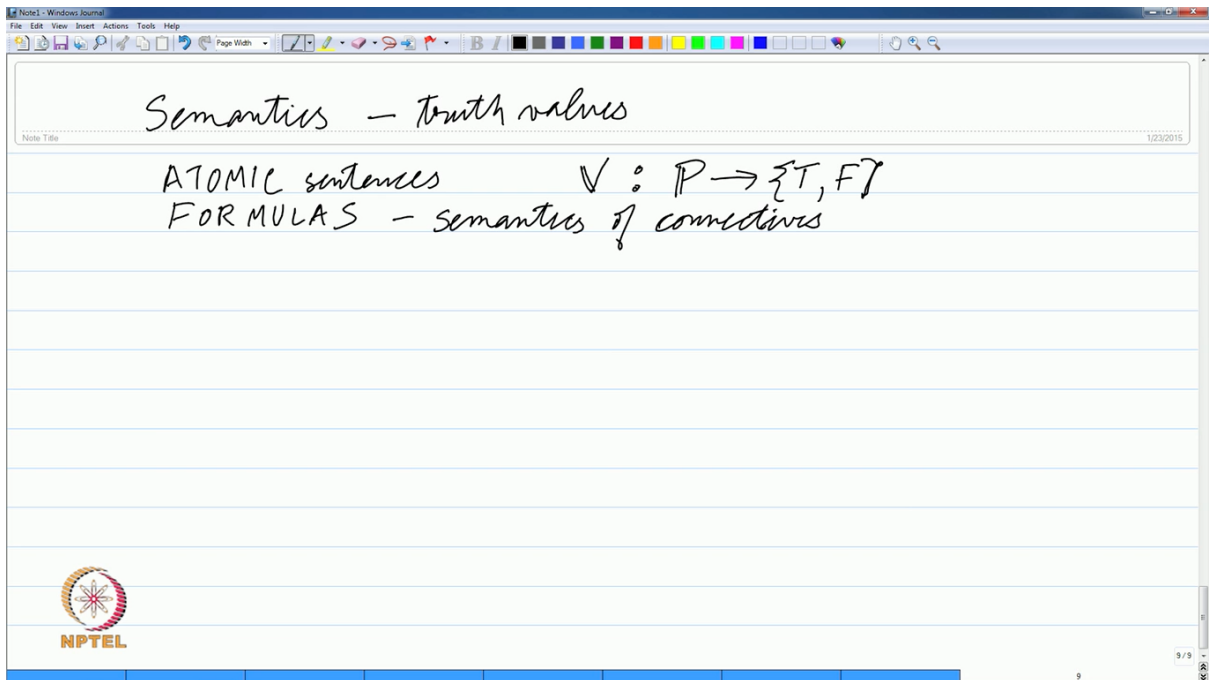 Note1 - Windows Journal
File Edit View Insert Actions Tools Help
Page Width
Semantics – truth values
Note Title
1/23/2015
ATOMIC sentences V : P → {T, F}
FORMULAS – semantics of connectives
NPTEL
9 / 9
9